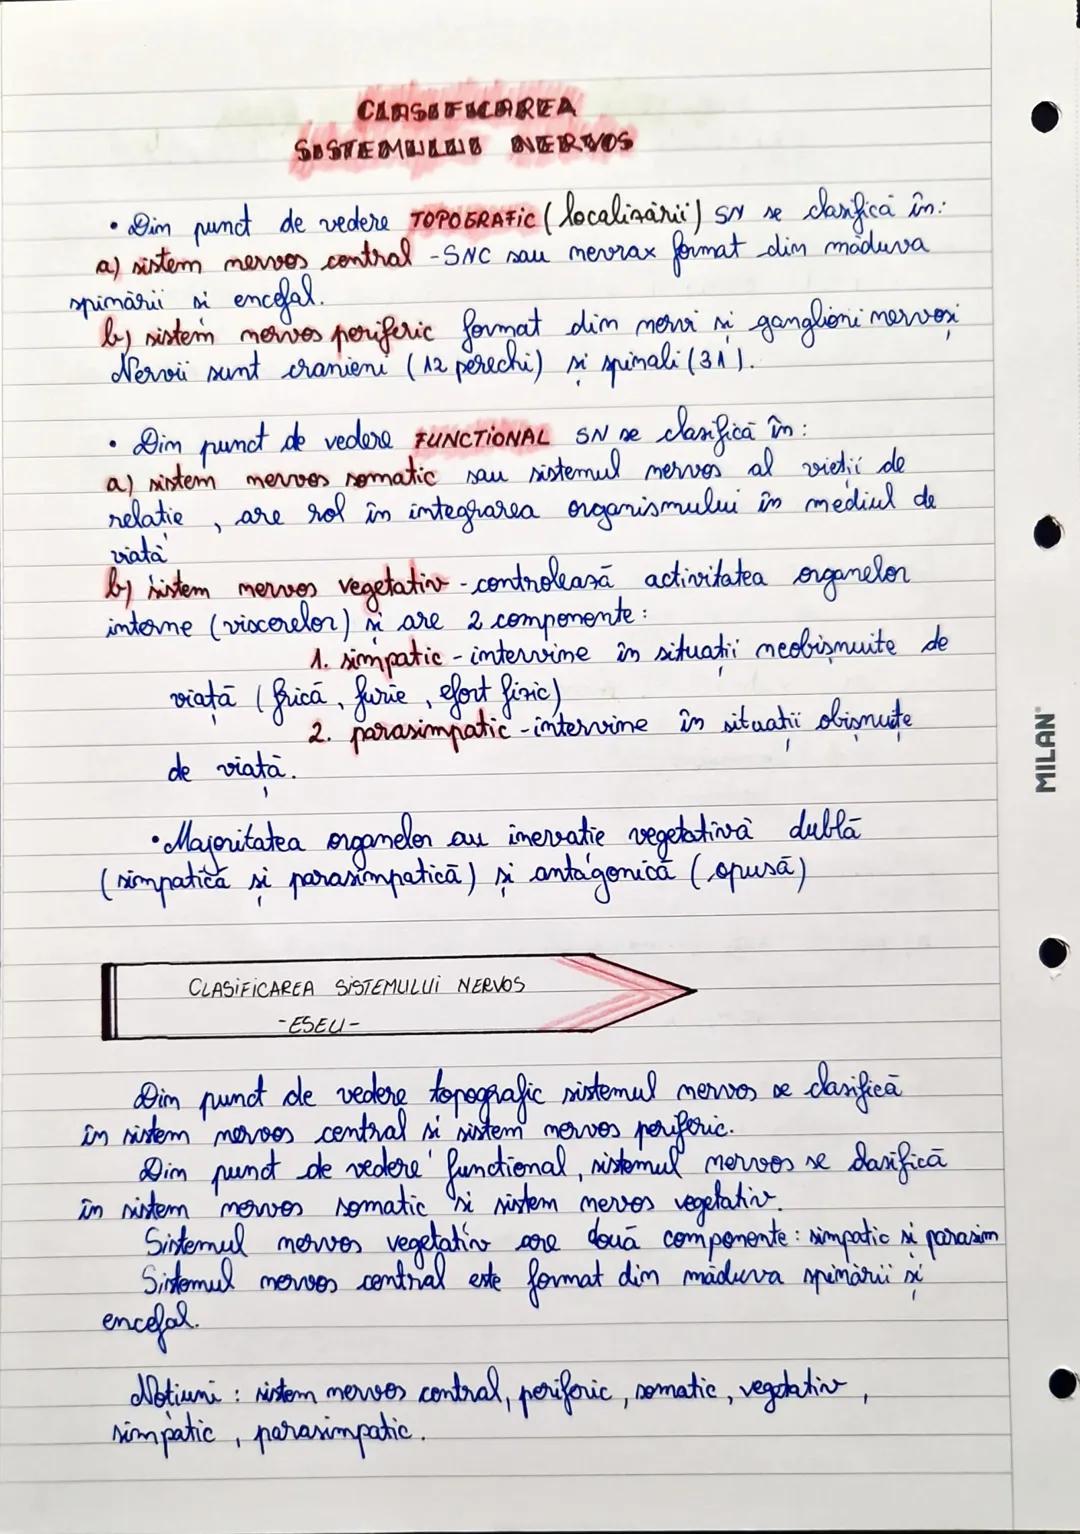 CLASIFICAREA
SISTEMULUI NERVOS
• Din punct de vedere TOPOGRAFIC (localizării) SN se clasifică în:
a) sistem nervos central - SNC sau nevrax format din măduva
spinării si encefal.
b) sistem nervos periferic format din nervi și ganglioni nervoși
Nervii sunt cranieni (12 perechi) și spinali (31).
• Din punct de vedere FUNCTIONAL SN se clasifică în:
a) sistem nervos somatic sau sistemul nervos al vieții de
relație, are rol în integrarea organismului în mediul de
viată
b) sistem nervos vegetativ - controlează activitatea organelor
interne (viscerelor) și are 2 componente:
1. simpatic - intervine în situații neobișnuite de
viață (frică, furie, efort fizic)
2. parasimpatic - intervine în situații obișnuite
de viață.
• Majoritatea organelor au inervatie vegetativă dublă
(simpatică și parasimpatică) și antagonică (opusă)
CLASIFICAREA SISTEMULUI NERVOS
- ESEU -
Din punct de vedere topografic sistemul nervos se clasifică
în sistem nervos central si sistem nervos periferic.
Din punct de vedere functional, sistemul nervos se clasifică
în sistem nervos somatic si sistem nervos vegetativ.
Sistemul nervos vegetativ are două componente: simpatic și parasim
Sistemul nervos central este format din măduva spinării și
encefal.
Notiuni: sistem nervos central, periferic, somatic, vegetativ,
simpatic, parasimpatic.
MILAN